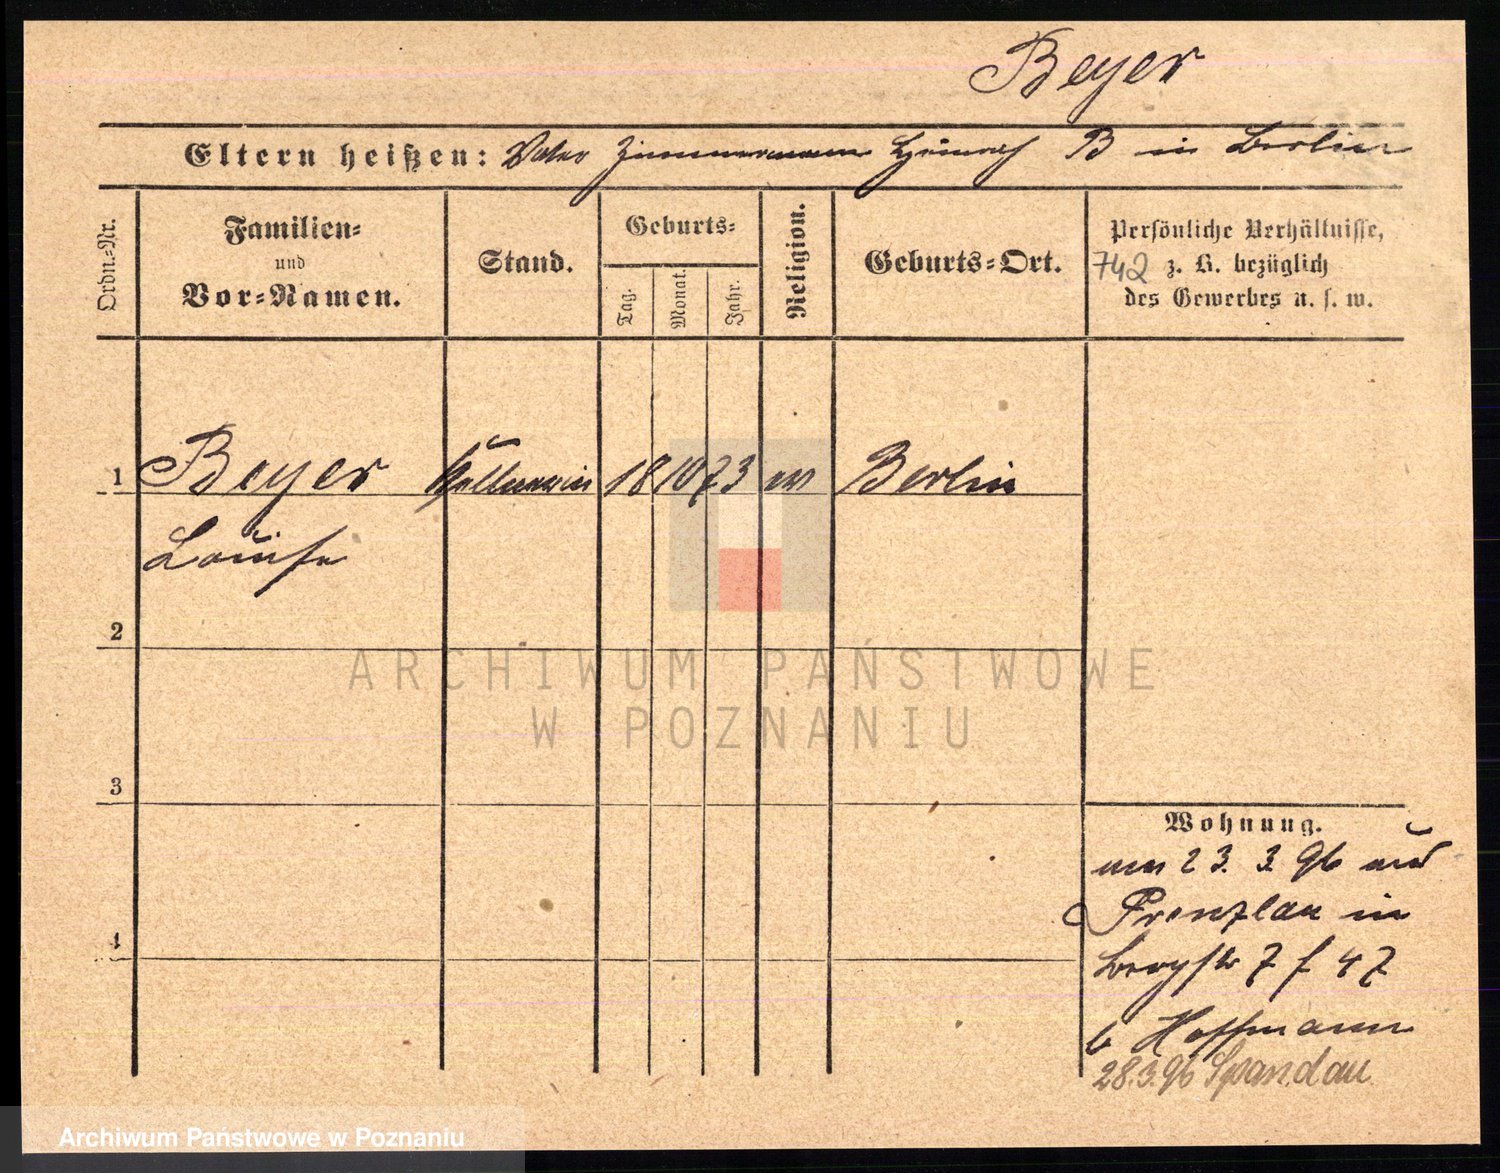 Beyer
Eltern heißen: Vater Zimmermann Heinrich B in Berlin
Ordn.-Nr.
Familien-
und
Vor-Namen.
Stand.
Geburts-
Tag.
Monat.
Jahr.
Religion.
Geburts-Ort.
Persönliche Verhältnisse,
742 z. B. bezüglich
des Gewerbes u. s. w.
1 Beyer Kellnerin 18 10 73 ev Berlin
Louise
2
3
4
Wohnung.
am 23. 3. 96 aus
Prenzlau in
Bergstr 7 f 47
b Hoffmann
28.3.96 Spandau
ARCHIWUM PAŃSTWOWE
W POZNANIU
Archiwum Państwowe w Poznaniu